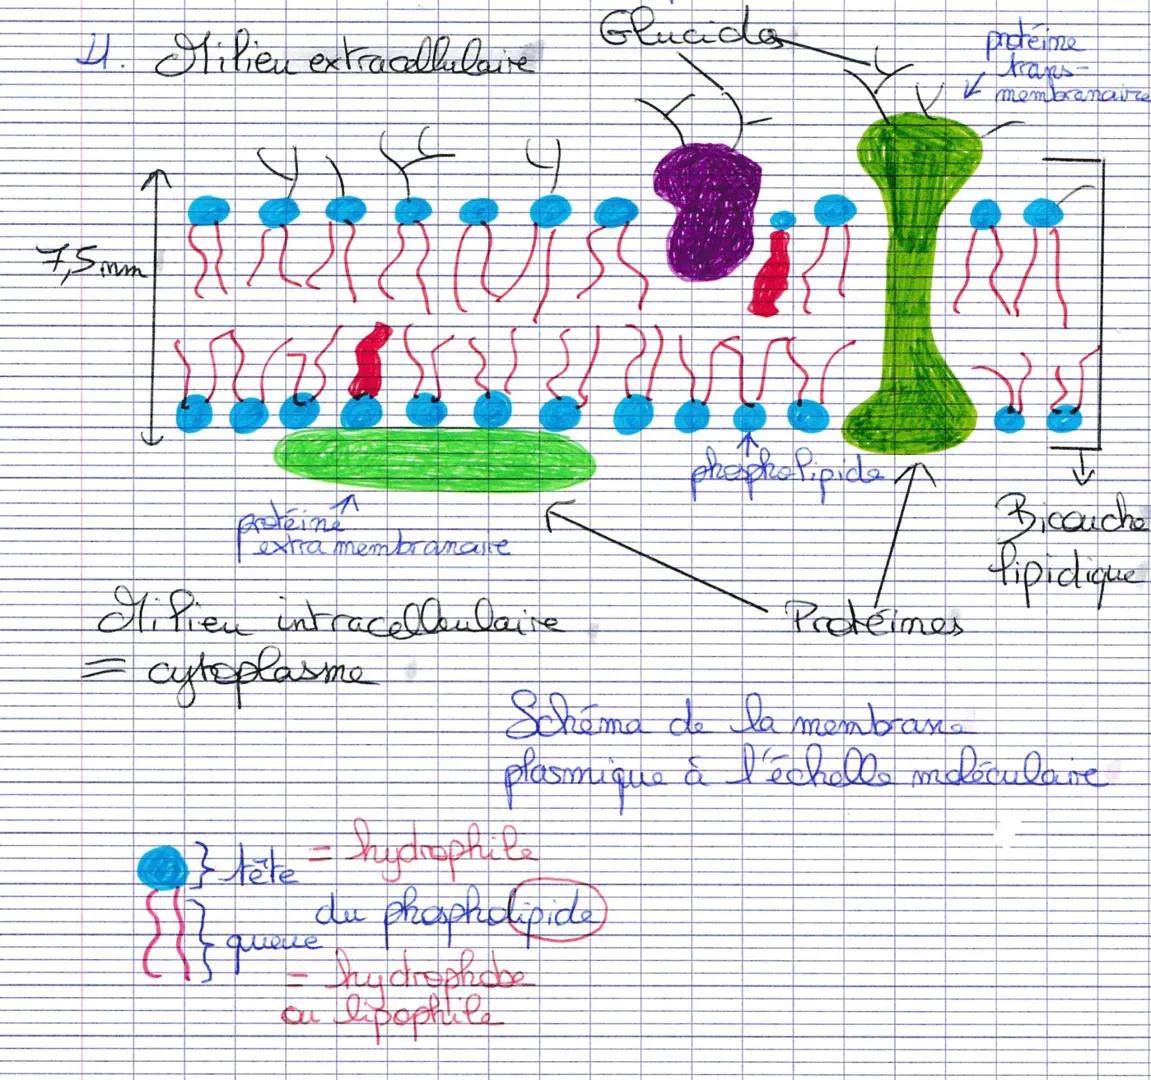 4. Milieu extracellulaire
Glucides
protéine
trans-
membranaire
7,5 nm
phospholipide
protéine
extra membranaire
Bicouche
lipidique
Protéines
Milieu intracellulaire
= cytoplasme
Schéma de la membrane
plasmique à l'échelle moléculaire
tête = hydrophile
du phospholipide
queue
= hydrophobe
ou lipophile